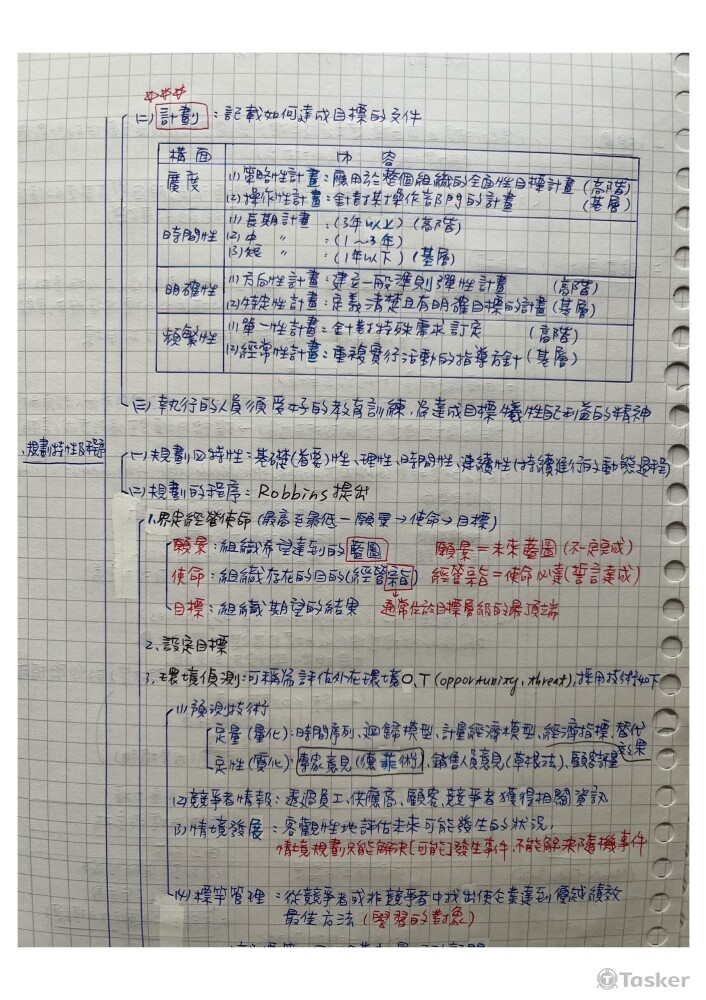 ☆☆☆
(二) 計劃：記載如何達成目標的文件
構面 內容
廣度 (1) 策略性計畫：應用於整個組織的全面性目標計畫 (高階)
(2) 操作性計畫：針對某操作部門的計畫 (基層)
時間性 (1) 長期計畫：(3年以上) (高階)
(2) 中 〃 ：(1~3年)
(3) 短 〃 ：(1年以下) (基層)
明確性 (1) 方向性計畫：建立一般準則彈性計畫 (高階)
(2) 特定性計畫：定義清楚且有明確目標的計畫 (基層)
頻繁性 (1) 單一性計畫：針對特殊需求訂定 (高階)
(2) 經常性計畫：重複實行活動的指導方針 (基層)
(三) 執行的人員須受好的教育訓練，為達成目標犧牲自己利益的精神
、規劃特性及程序
(一) 規劃四特性：基礎(首要)性、理性、時間性、連續性(持續進行的動態過程)
(二) 規劃的程序：Robbins提出
1.界定經營使命 (最高至最低－願景→使命→目標)
願景：組織希望達到的藍圖 願景＝未來藍圖 (不一定完成)
使命：組織存在的目的(經營宗旨) 經營宗旨＝使命必達(誓言達成)
目標：組織期望的結果 通常位於目標層級的最頂端
2.設定目標
3.環境偵測：可稱為評估外在環境O、T (opportunity、threat)，採用技術如下
(1) 預測技術
定量(量化)：時間序列、迴歸模型、計量經濟模型、經濟指標、替代效果
定性(質化)：專家意見(德菲術)、銷售人員意見(草根法)、顧客評量
(2) 競爭者情報：透過員工、供應商、顧客、競爭者獲得相關資訊
(3) 情境發展：客觀性地評估未來可能發生的狀況，
情境規劃只能解決[可能]發生事件，不能解決隨機事件
(4) 標竿管理：從競爭者或非競爭者中找出使企業達到優越績效
最佳方法 (學習的對象)
Tasker